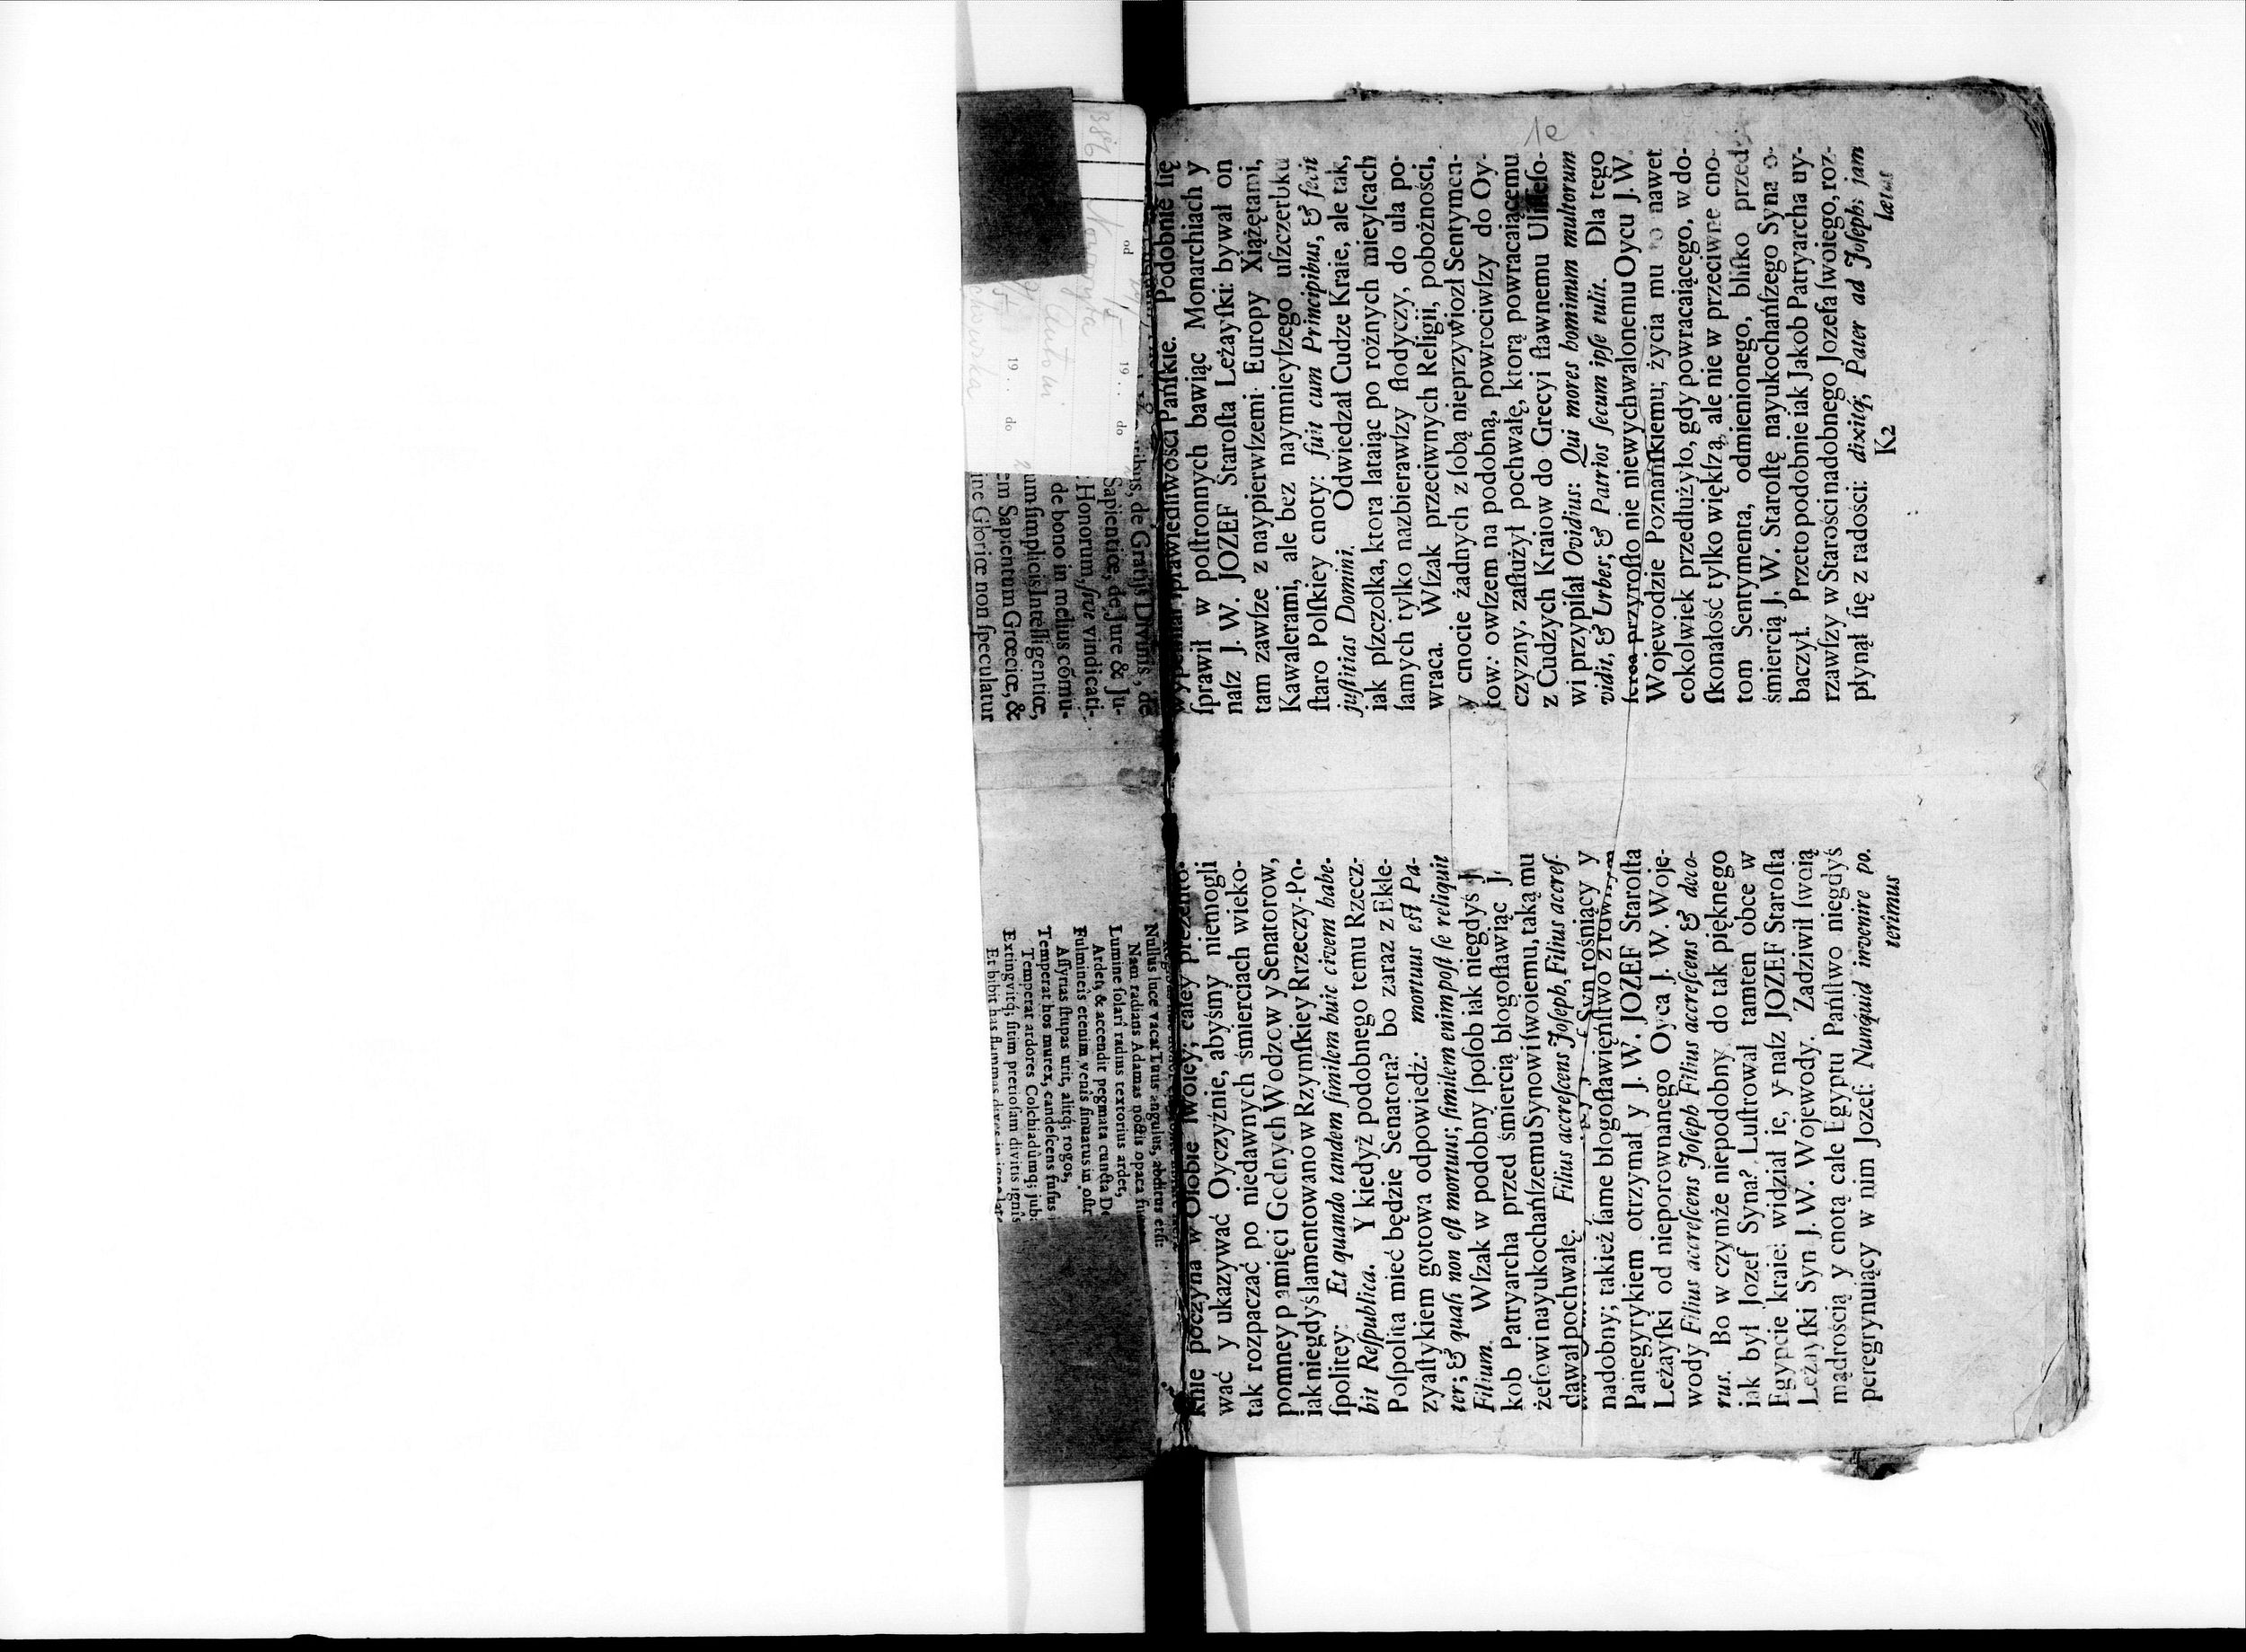 knie poczyna w Osobie ſwoiey; całey prezento-
wać y ukazywać Oyczyźnie, abyśmy niemogli
tak rozpaczać po niedawnych śmierciach wieko-
pomney pamięci Godnych Wodzow y Senatorow,
jak niegdyś lamentowano w Rzymſkiey Rrzeczy-Po-
ſpolitey: Et quando tandem ſimilem huic civem habe-
bit Reſpublica. Y kiedyż podobnego temu Rzecz-
Poſpolita mieć będzie Senatora? bo zaraz z Ekle-
zyaſtykiem gotowa odpowiedź: mortuus eſt Pa-
ter; & quaſi non eſt mortuus; ſimilem enim poſt ſe reliquit
Filium. Wſzak w podobny ſpoſob iak niegdyś
kob Patryarcha przed śmiercią błogoſławiąc
żefowi nayukochańſzemu Synowi ſwoiemu, taką mu
dawał pochwałę. Filius accreſcens Joſeph, Filius accreſ-
Syn rośniący y
nadobny; takież ſame błogoſławieńſtwo z
Panegyrykiem otrzymał y J. W. JOZEF Staroſta
Leżayſki od nieporownanego Oyca J. W. Woje-
wody Filius accreſcens Joſeph Filius accreſcens & deco-
rus. Bo w czymże niepodobny do tak pięknego
iak był Jozef Syna? Luſtrował tamten obce w
Egypcie kraie: widział ie, y naſz JOZEF Staroſta
Leżayſki Syn J. W. Wojewody. Zadziwił ſwoią
mądroscią y cnotą całe Egyptu Pańſtwo niegdyś
peregrynuiący w nim Jozef: Nunquid invenire po-
terimus
ſprawiedliwości Pańſkie. Podobnie ſię
ſprawił w poſtronnych bawiąc Monarchiach y
naſz J. W. JOZEF Staroſta Leżayſki: bywał on
tam zawſze z naypierwſzemi Europy Xiążętami,
Kawalerami, ale bez naymnieyſzego uſzczerbku
ſtaro Polſkiey cnoty: fuit cum Principibus, & fecit
juſtitias Domini. Odwiedzał Cudze Kraie, ale tak,
iak pſzczołka, ktora lataiąc po rożnych mieyſcach
ſamych tylko nazbierawſzy ſłodyczy, do ula po-
wraca. Wſzak przeciwnych Religii, pobożności,
y cnocie żadnych z ſobą nieprzywiozł Sentymen-
tow: owſzem na podobną, powrociwſzy do Oy-
czyzny, zaſłużył pochwałę, ktorą powracaiącemu
z Cudzych Kraiow do Grecyi ſławnemu Uliſſeſo-
wi przypiſał Ovidius: Qui mores hominum multorum
vidit, & Urbes; & Patrios ſecum ipſe tulit. Dla tego
przyroſło nie niewychwalonemu Oycu J. W.
Wojewodzie Poznańſkiemu; życia mu to nawet
cokolwiek przedłużyło, gdy powracaiącego, w do-
ſkonałość tylko większą, ale nie w przeciwne cno-
tom Sentymenta, odmienionego, bliſko przed
śmiercią J. W. Staroſtę nayukochańſzego Syna o-
baczył. Przeto podobnie iak Jakob Patryarcha uy-
rzawſzy w Starości nadobnego Jozefa ſwoiego, roz-
płynął ſię z radości: dixitq; Pater ad Joſeph; jam
K2 lætus
de Gratijs Divinis, de
Sapientiæ, de Jure & Ju-
Honorum, ſive vindicati-
de bono in melius cõmu-
um ſimplicis Intelligentiæ,
em Sapientum Græciæ, &
ne Gloriæ non ſpeculatur
Nullus luce vacat Tuus angulus, abditus
Nam radians Adamas noctis opaca
Lumine ſolari radius textorius ardet,
Ardet, & accendit pegmata cuncta
Fulmineis etenim venis ſinuatus in
Aſſyrias ſtupas urit, alitq; rogos,
Temperat hos murex, candeſcens fuſus
Temperat ardores Colchiadûmq;
Extingvitq; ſitim pretioſam divitis ignis
Et bibit has flammas
od 19 . . do
19 . . do